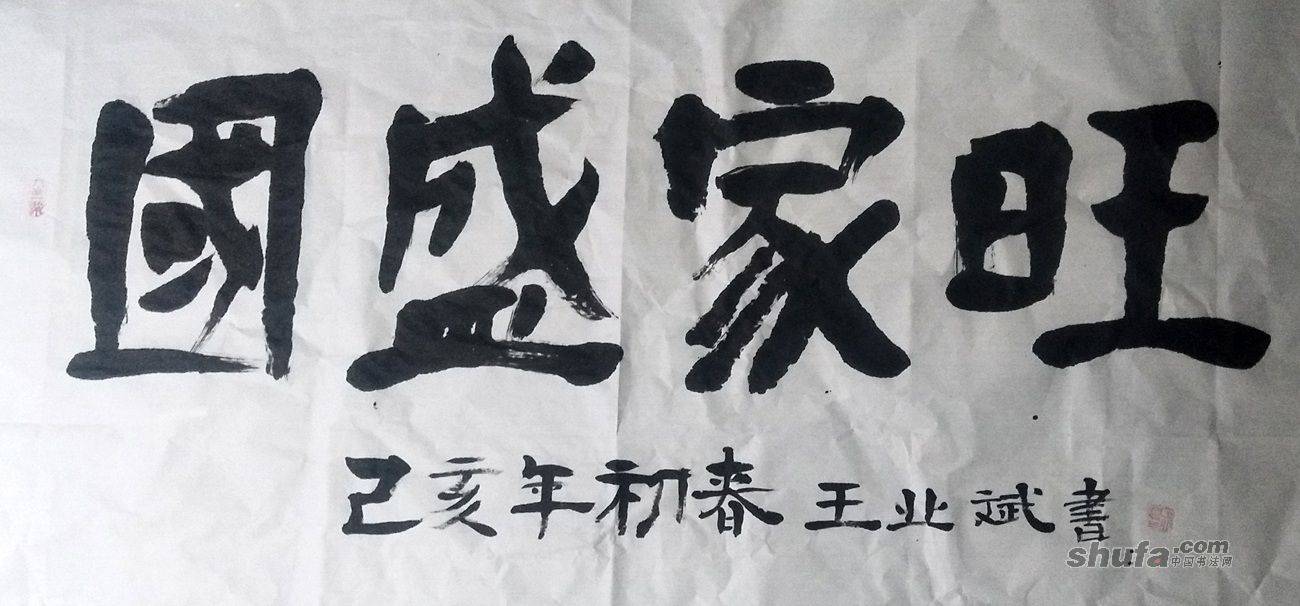 國盛家旺
己亥年初春 王业斌書
shufa.com
中国书法网